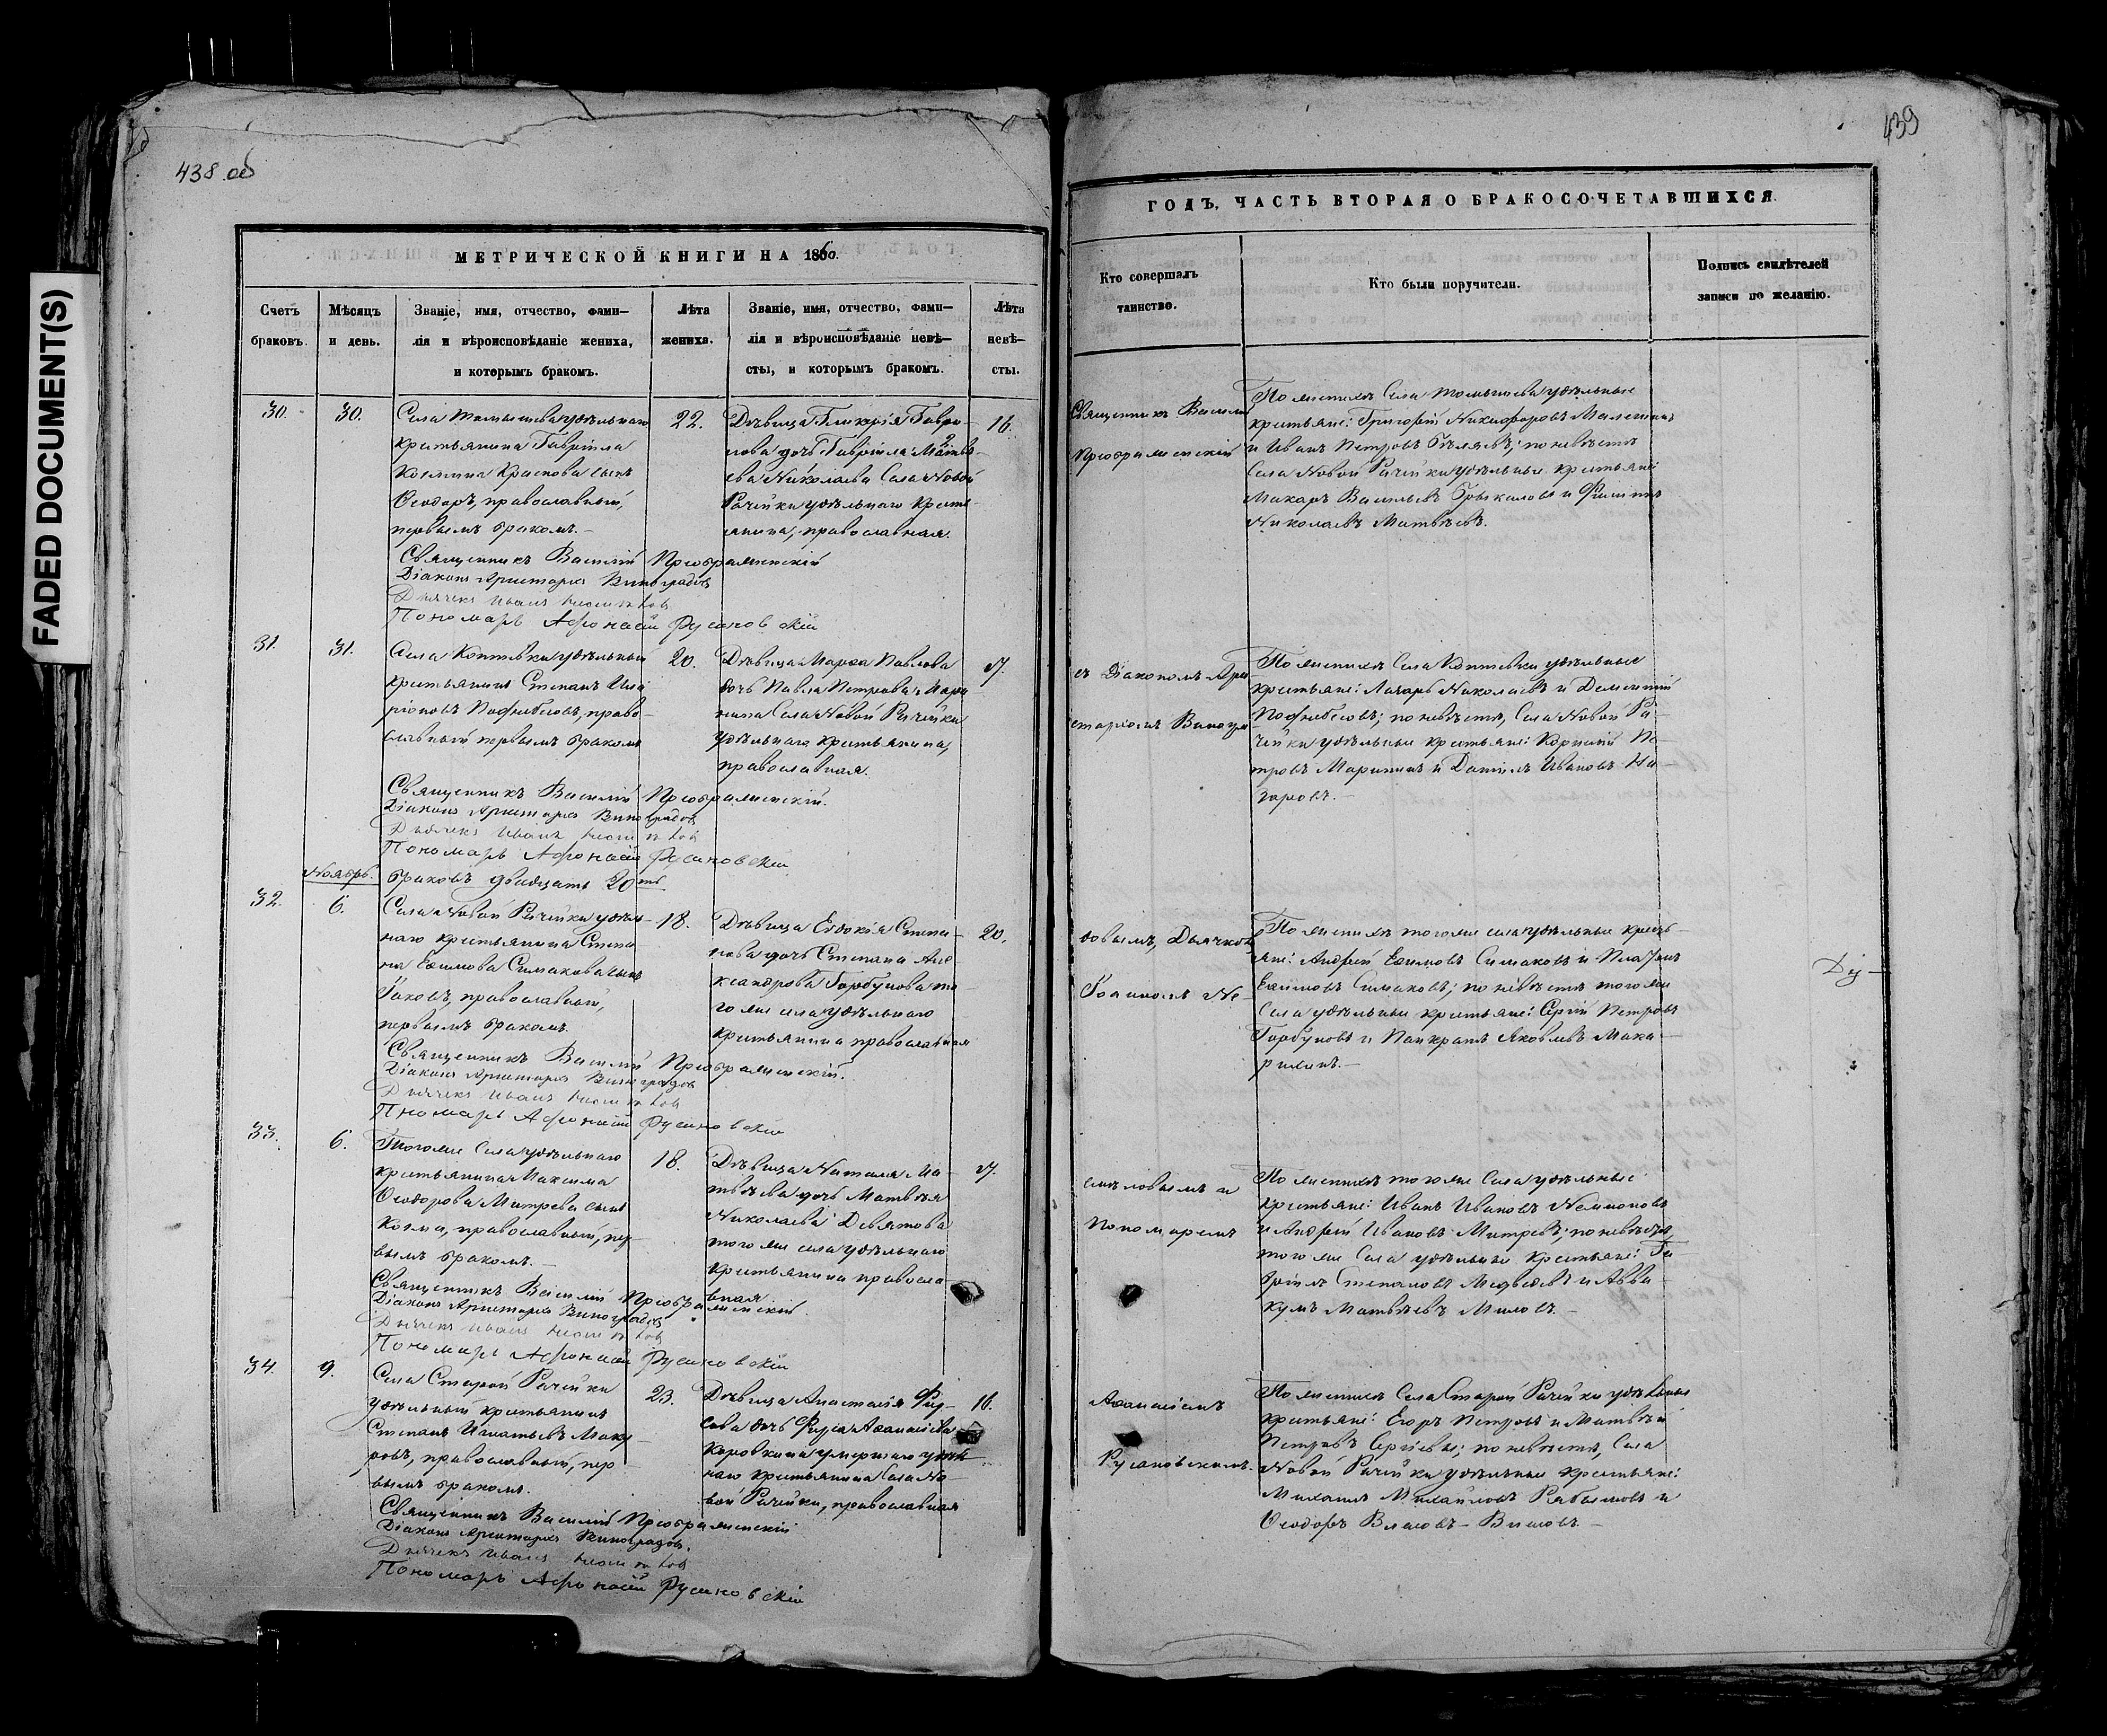 FADED DOCUMENT(S)
438 об
МЕТРИЧЕСКОЙ КНИГИ НА 1860.
Счетъ браковъ.
Мѣсяцъ и день.
Званіе, имя, отчество, фами-
лія и вѣроисповѣданіе жениха,
и которымъ бракомъ.
Лѣта жениха.
Званіе, имя, отчество, фами-
лія и вѣроисповѣданіе невѣ-
сты, и которымъ бракомъ.
Лѣта невѣ-
сты.
30.
30.
Села Томышева удѣльнаго
крестьянина Гавріила
Козмина Краснова сынъ
Ѳеодоръ, православный,
первымъ бракомъ.-
22.
Дѣвица Гликерія Гаври-
лова дочь Гавріила Матвѣ-
ева Николаева Села Новой
Рачейки удѣльнаго кресть-
янина, православная.
16.
Священникъ Василій Преображенскій
Діаконъ Аристархъ Виноградовъ
Дьячекъ Иванъ
Пономарь Афонасій Русановскій
31.
31.
Села Коптевки удѣльный
крестьянинъ Степанъ Ила
ріоновъ, право-
славный первымъ бракомъ
20.
Дѣвица Марѳа Павлова
дочь Павла Петрова Мари
нина Села Новой Рачейки
удѣльнаго крестьянина,
православная.
17.
Священникъ Василій Преображенскій.
Діаконъ Аристархъ Виноградовъ
Дьячекъ Иванъ
Пономарь Афонасій Русановскій
Ноябрь.
браковъ двадцать 20ть
32.
6.
Села Новой Рачейки удѣль-
наго крестьянина Степа-
на Ефимова Симакова сынъ
Іаковъ, православный,
первымъ бракомъ.
18.
Дѣвица Евдокія Степа-
нова дочь Степана Але-
ксандрова Горбунова то-
го же села удѣльнаго
крестьянина православная
20.
Священникъ Василій Преображенскій.
Діаконъ Аристархъ Виноградовъ
Дьячекъ Иванъ
Пономарь Афонасій Русановскій
33.
6.
Тогоже Села удѣльнаго
крестьянина Максима
Ѳеодорова Митрева сынъ
Козма, православный, пер-
вымъ бракомъ.-
18.
Дѣвица Наталя Ма-
твѣева дочь Матвѣя
Николаева Девятова
того же села удѣльнаго
крестьянина правосла
вная
17.
Священникъ Василій Преображенскій
Діаконъ Аристархъ Виноградовъ
Дьячекъ Иванъ
Пономарь Афонасій Русановскій
34.
9.
Села Старой Рачейки
удѣльный крестьянинъ
Степанъ Игнатьевъ
православный, пер-
вымъ бракомъ.
23.
Дѣвица Анастасія Фир-
сова дочь Фирса Аѳанасіева
Коровкина умершаго удѣль
наго крестьянина Села Но-
вой Рачейки, православная
16.
Священникъ Василій Преображенскій
Діаконъ Аристархъ Виноградовъ.
Дьячекъ Иванъ
Пономарь Афонасій Русановскій
439
ГОДЪ, ЧАСТЬ ВТОРАЯ О БРАКОСОЧЕТАВШИХСЯ.
Кто совершалъ
таинство.
Кто были поручители.
Подпись свидѣтелей
записи по желанію.
Священникъ Василій
Преображенскій
съ Діакономъ Ари
стархомъ Виногра
довымъ, Дьячкомъ
Іоанномъ Не-
смѣловымъ и
Пономаремъ
Аѳанасіемъ
Русановскимъ.
По женихѣ Села Томышева удѣльные
крестьяне: Григорій Никифоровъ
и Иванъ Петровъ Бѣляевъ; по невѣстѣ
Села Новой Рачейки удѣльные крестьяне
Макаръ Васильевъ и Филиппъ
Николаевъ Матвѣевъ.
По женихѣ Села Коптевки удѣльные
крестьяне: Лазарь Николаевъ и Дементій
по невѣстѣ, Села Новой Ра-
чейки удѣльные крестьяне: Корнилій Пе-
тровъ Марининъ и Даніилъ Ивановъ На-
заровъ.-
По женихѣ тогоже села удѣльные кресть-
яне: Андрей Ефимовъ Симаковъ и Платонъ
Ефимовъ Симаковъ; по невѣстѣ тогоже
Села удѣльные крестьяне: Сергій Петровъ
Горбуновъ и Панкратъ Яковлевъ Мака-
По женихѣ тогоже Села удѣльные
крестьяне: Иванъ Ивановъ
и Андрей Ивановъ Митревъ; по невѣстѣ,
того же Села удѣльные крестьяне: Га-
вріилъ Степановъ Медведевъ и Авва-
кумъ Матвѣевъ Миловъ.-
По женихѣ Села Старой Рачейки удѣльные
крестьяне: Егоръ Петровъ и Матвѣй
Петровъ Сергѣевы; по невѣстѣ, Села
Новой Рачейки удѣльные крестьяне:
Михаилъ Михайловъ и
Ѳеодоръ Власовъ